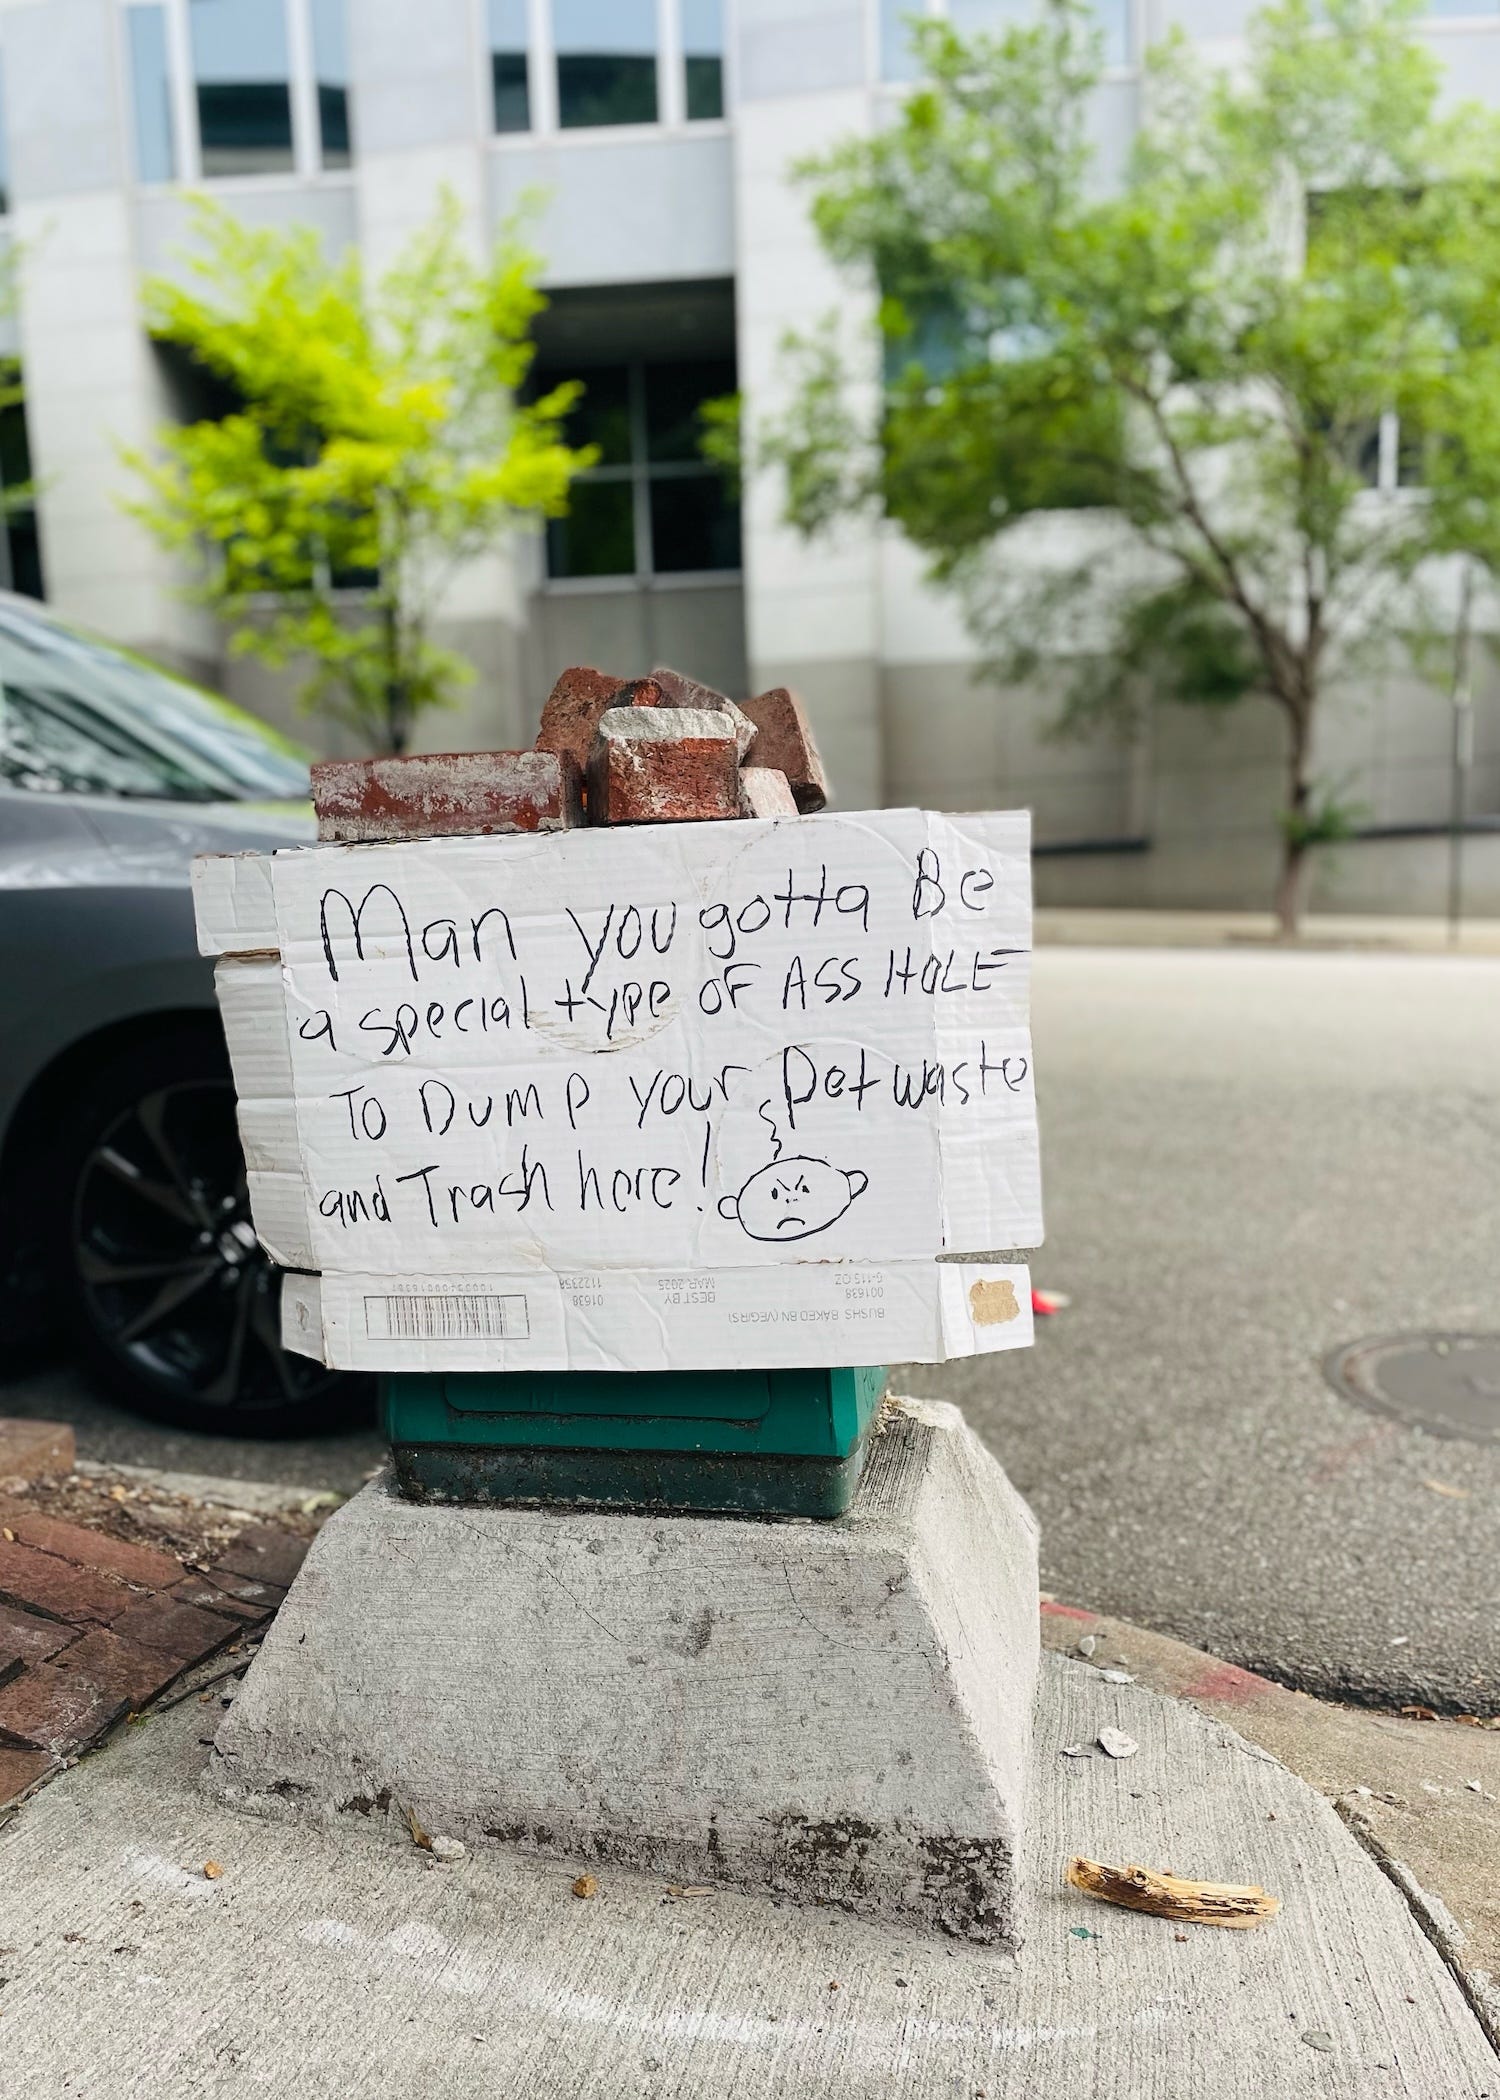 Man you gotta Be
a special type OF ASS HOLE
To Dump your Pet waste
and Trash here!
BUSHS BAKED BN (VEG/RS)
001638
6-115 OZ
BEST BY
MAR 2025
01638
1122358